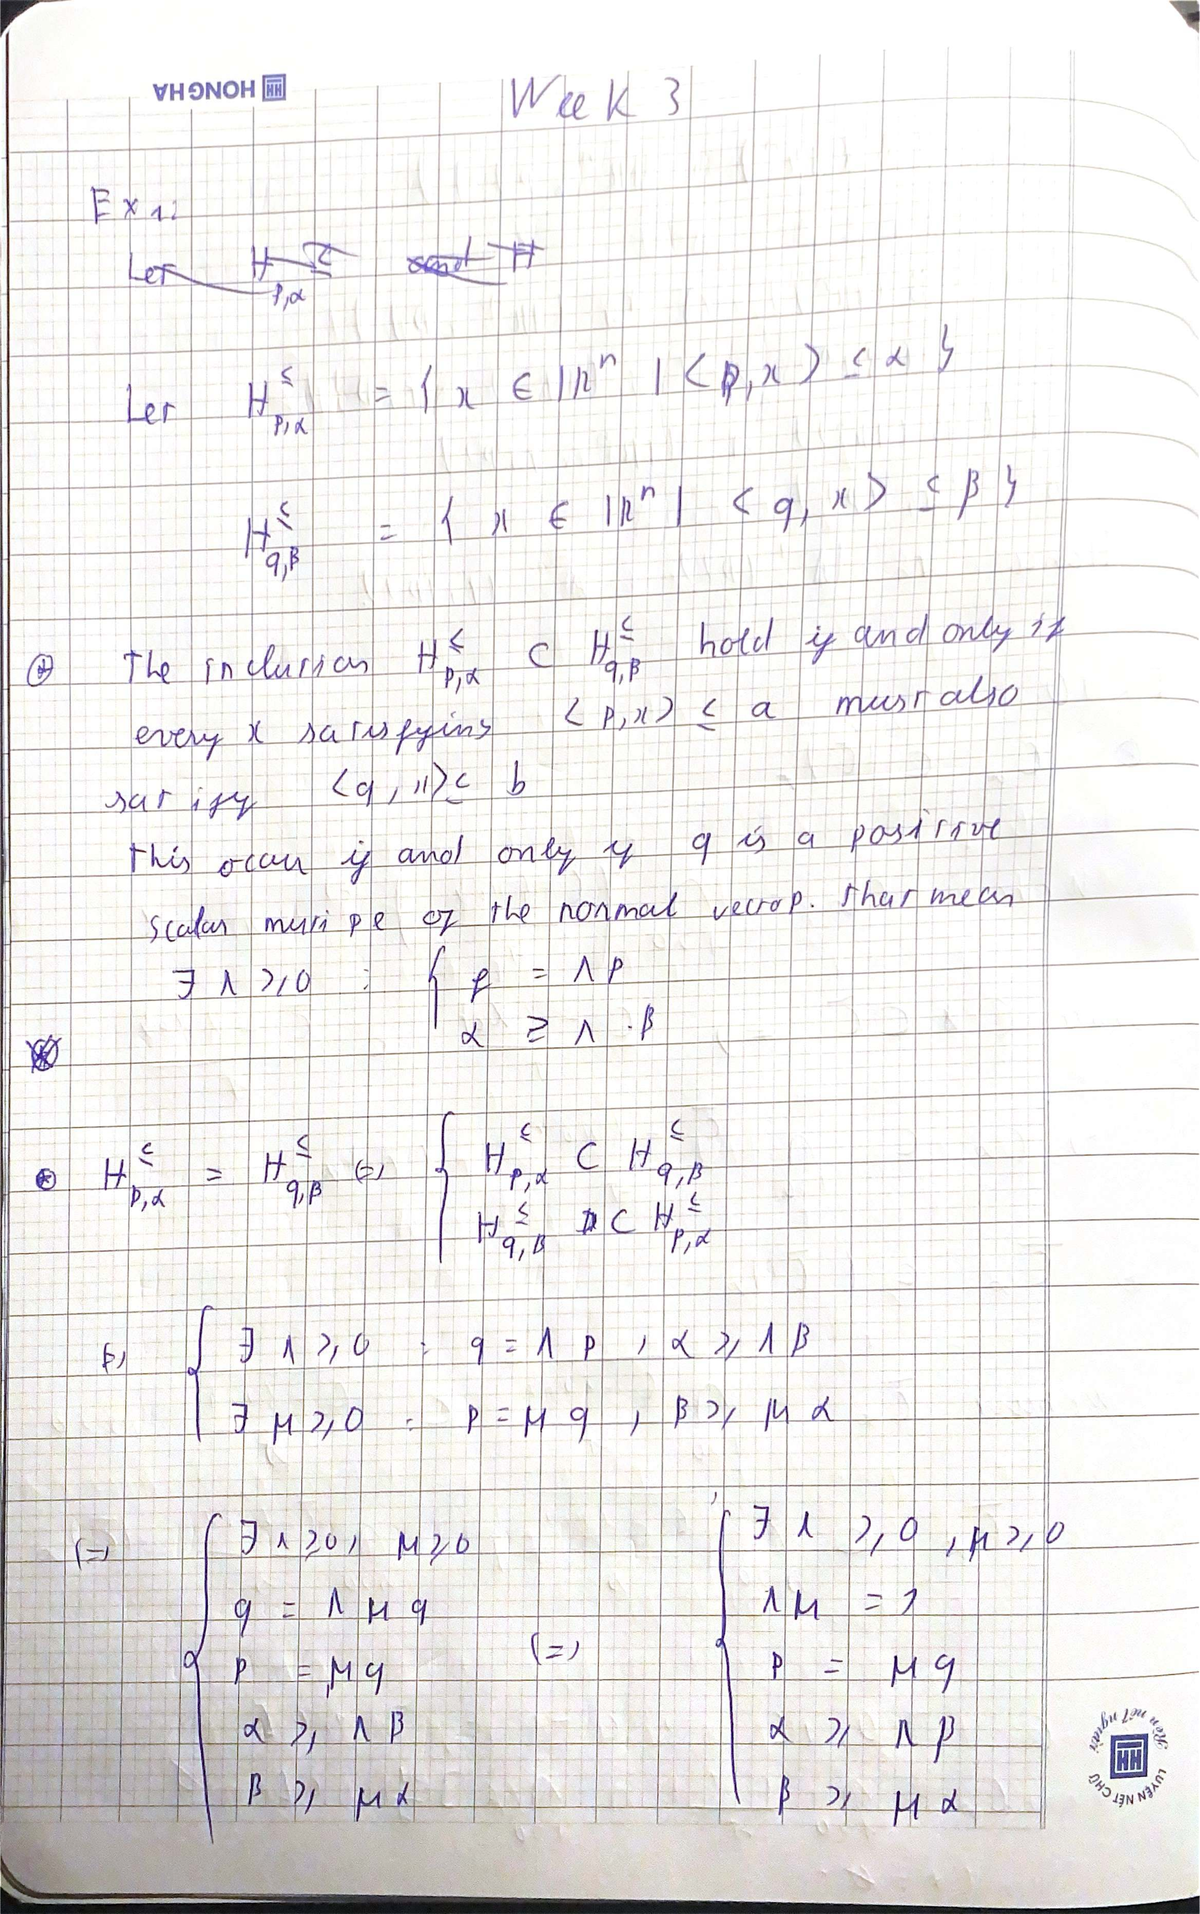 HONG HA
Week 3
Ex 1:
Let H≤p,α and H
Let H≤p,α = { x ∈ ℝⁿ | <p, x> ≤ α }
H≤q,β = { x ∈ ℝⁿ | <q, x> ≤ β }
The inclusion H≤p,α ⊂ H≤q,β hold if and only if
every x satisfying <p, x> ≤ a must also
satisfy <q, x> ≤ b
This occur if and only if q is a positive
scalar of the normal vector p. that mean
∃ λ ≥ 0 : { = λ p
α ≥ λ . β
H≤p,α = H≤q,β (=) { H≤p,α ⊂ H≤q,β
H≤q,β ⊂ H≤p,α
(=) { ∃ λ ≥ 0 : q = λ p , α ≥ λ β
∃ μ ≥ 0 : p = μ q , β ≥ μ α
(=) { ∃ λ ≥ 0, μ ≥ 0
q = λ μ q
p = μ q
α ≥ λ β
β ≥ μ α
(=) { ∃ λ ≥ 0 , μ ≥ 0
λ μ = 1
p = μ q
α ≥ λ β
β ≥ μ α
LUYỆN NÉT CHỮ
Rèn nết người